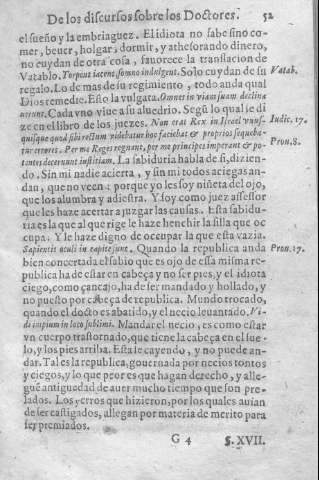 De los discursos sobre los Doctores. 52
el sueño y la embriaguez. El idiota no sabe sino co-
mer, beuer, holgar, dormir, y athesorando dinero,
no cuydan de otra cosa, fauorece la translacion de
Vatablo. Torpent iacent somno indulgent. Solo cuydan de su Vatab.
regalo. Lo demas de su regimiento, todo anda qual
Dios remedie. Esto la vulgata. Omnes in viam suam declina
uerunt. Cada vno viue a su aluedrio. Segũ lo qual se di
ze en el libro de los juezes. Non erat Rex in Israel vnus- Iudic. 17.
quisque quod sibi rectum videbatur hoc faciebat & proprios sequeba-
tur errores. Per me Reges regnant, per me principes imperant & po- Pron. 8.
tentes decernunt iustitiam. La sabiduria habla de si, dizien
do. Sin mi nadie acierta, y sin mi todos aciegas an-
dan, que no veen: porque yo les soy niñeta del ojo,
que los alumbra y adiestra. Y soy como juez assessor
que les haze acertar a juzgar las causas. Esta sabidu-
ria es la que al que rige le haze henchir la silla que oc
cupa: Y le haze digno de occupar la que esta vazia.
Sapientis oculi in capite sunt. Quando la republica anda Pron. 17.
bien concertada el sabio que es ojo de essa misma re-
publica ha de estar en cabeça y no ser pies, y el idiota
ciego, como çancajo, ha de ser mandado y hollado, y
no puesto por cabeça de republica. Mundo trocado,
quando el docto es abatido, y el necio leuantado. Vi-
di impium in loco sublimi. Mandar el necio, es como estar
vn cuerpo trastornado, que tiene la cabeça en el sue-
lo, y los pies arriba. Esta se cayendo, y no puede an-
dar. Tal es la republica, gouernada por necios tontos
y ciegos, y lo que peor es que hagan derecho, y alle-
guẽ antiguedad de auer mucho tiempo que son pre-
lados. Los yerros que hizieron, por los quales auian
de ser castigados, allegan por materia de merito para
ser premiados.
G 4 §. XVII.